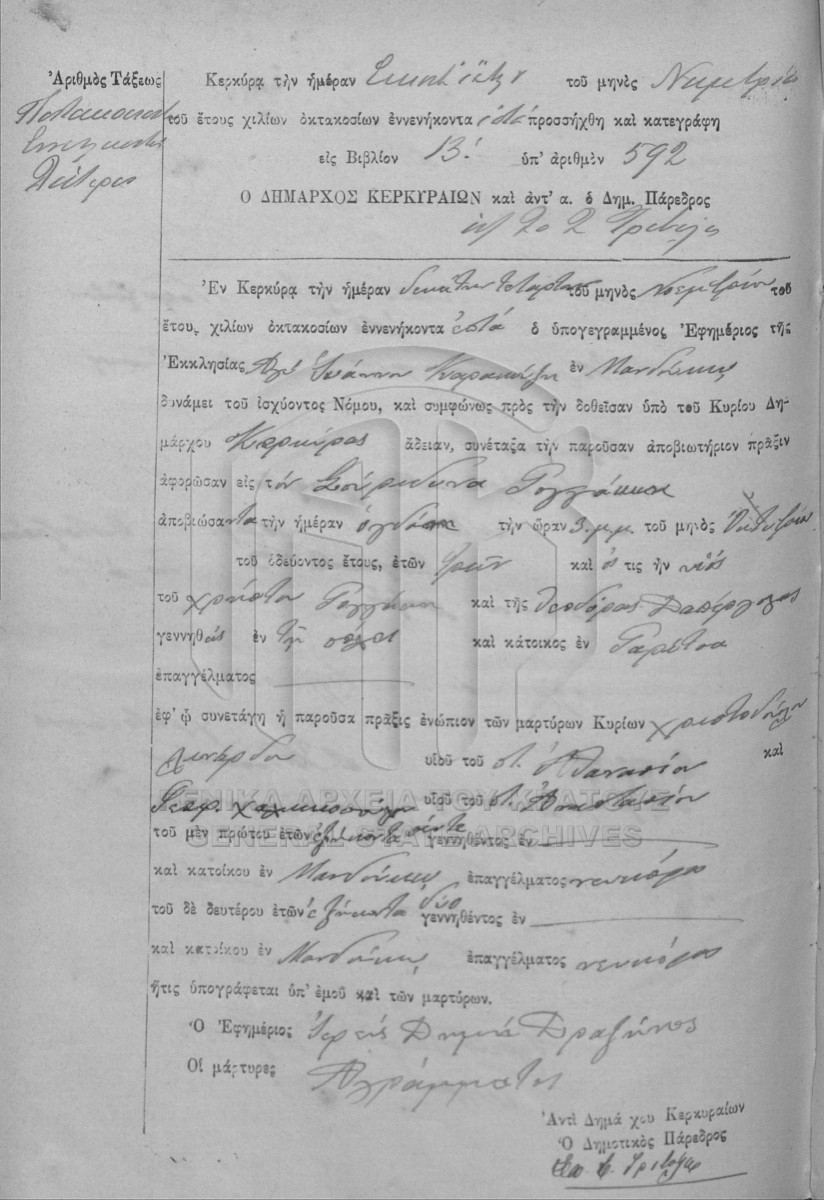 Ἀριθμὸς Τάξεως
Πεντακόσια
Ἐνενήκοντα
Δεύτερος
Κερκύρᾳ τὴν ἡμέραν Εἰκοστὴν ἕκτην τοῦ μηνὸς Νοεμβρίου
τοῦ ἔτους χιλίων ὀκτακοσίων ἐννενήκοντα ἑπτὰ προσήχθη καὶ κατεγράφη
εἰς Βιβλίον 13. ὑπ' ἀριθμὸν 592
Ο ΔΗΜΑΡΧΟΣ ΚΕΡΚΥΡΑΙΩΝ καὶ ἀντ' α. ὁ Δημ. Πάρεδρος
Ἐν Κερκύρᾳ τὴν ἡμέραν δεκάτην τετάρτην τοῦ μηνὸς Νοεμβρίου τοῦ
ἔτους χιλίων ὀκτακοσίων ἐννενήκοντα ἑπτὰ ὁ ὑπογεγραμμένος Ἐφημέριος τῆς
Ἐκκλησίας Ἁγ. Ἰωάννου ἐν Μανδούκι
δυνάμει τοῦ ἰσχύοντος Νόμου, καὶ συμφώνως πρὸς τὴν δοθεῖσαν ὑπὸ τοῦ Κυρίου Δη-
μάρχου Κερκύρας ἄδειαν, συνέταξα τὴν παροῦσαν ἀποβιωτήριον πρᾶξιν
ἀφορῶσαν εἰς τὸν Σπυρίδωνα
ἀποβιώσαντα τὴν ἡμέραν ὀγδόην τὴν ὥραν 3 μ.μ. τοῦ μηνὸς Ὀκτωβρίου
τοῦ ὁδεύοντος ἔτους, ἐτῶν τριῶν καὶ ὅς τις ἦν υἱὸς
τοῦ Χρήστου καὶ τῆς Θεοδώρας
γεννηθεὶς ἐν τῇ πόλει καὶ κάτοικος ἐν Γαρίτσα
ἐπαγγέλματος
ἐφ' ᾧ συνετάγη ἡ παροῦσα πρᾶξις ἐνώπιον τῶν μαρτύρων Κυρίων Χριστοδούλου
υἱοῦ τοῦ π. Ἀθανασίου καὶ
Γερ. υἱοῦ τοῦ π. Ἀναστασίου
ΓΕΝΙΚΑ ΑΡΧΕΙΑ ΤΟΥ ΚΡΑΤΟΥΣ
GENERAL STATE ARCHIVES
τοῦ μὲν πρώτου ἐτῶν ἑξήκοντα πέντε γεννηθέντος ἐν
καὶ κατοίκου ἐν Μανδούκι ἐπαγγέλματος νεωκόρος
τοῦ δὲ δευτέρου ἐτῶν ἑξήκοντα δύο γεννηθέντος ἐν
καὶ κατοίκου ἐν Μανδούκι ἐπαγγέλματος νεωκόρος
ἥτις ὑπογράφεται ὑπ' ἐμοῦ καὶ τῶν μαρτύρων.
Ὁ Ἐφημέριος Ἱερεὺς
Οἱ μάρτυρες Ἀγράμματοι
Ἀντὶ Δημάρχου Κερκυραίων
Ὁ Δημοτικὸς Πάρεδρος